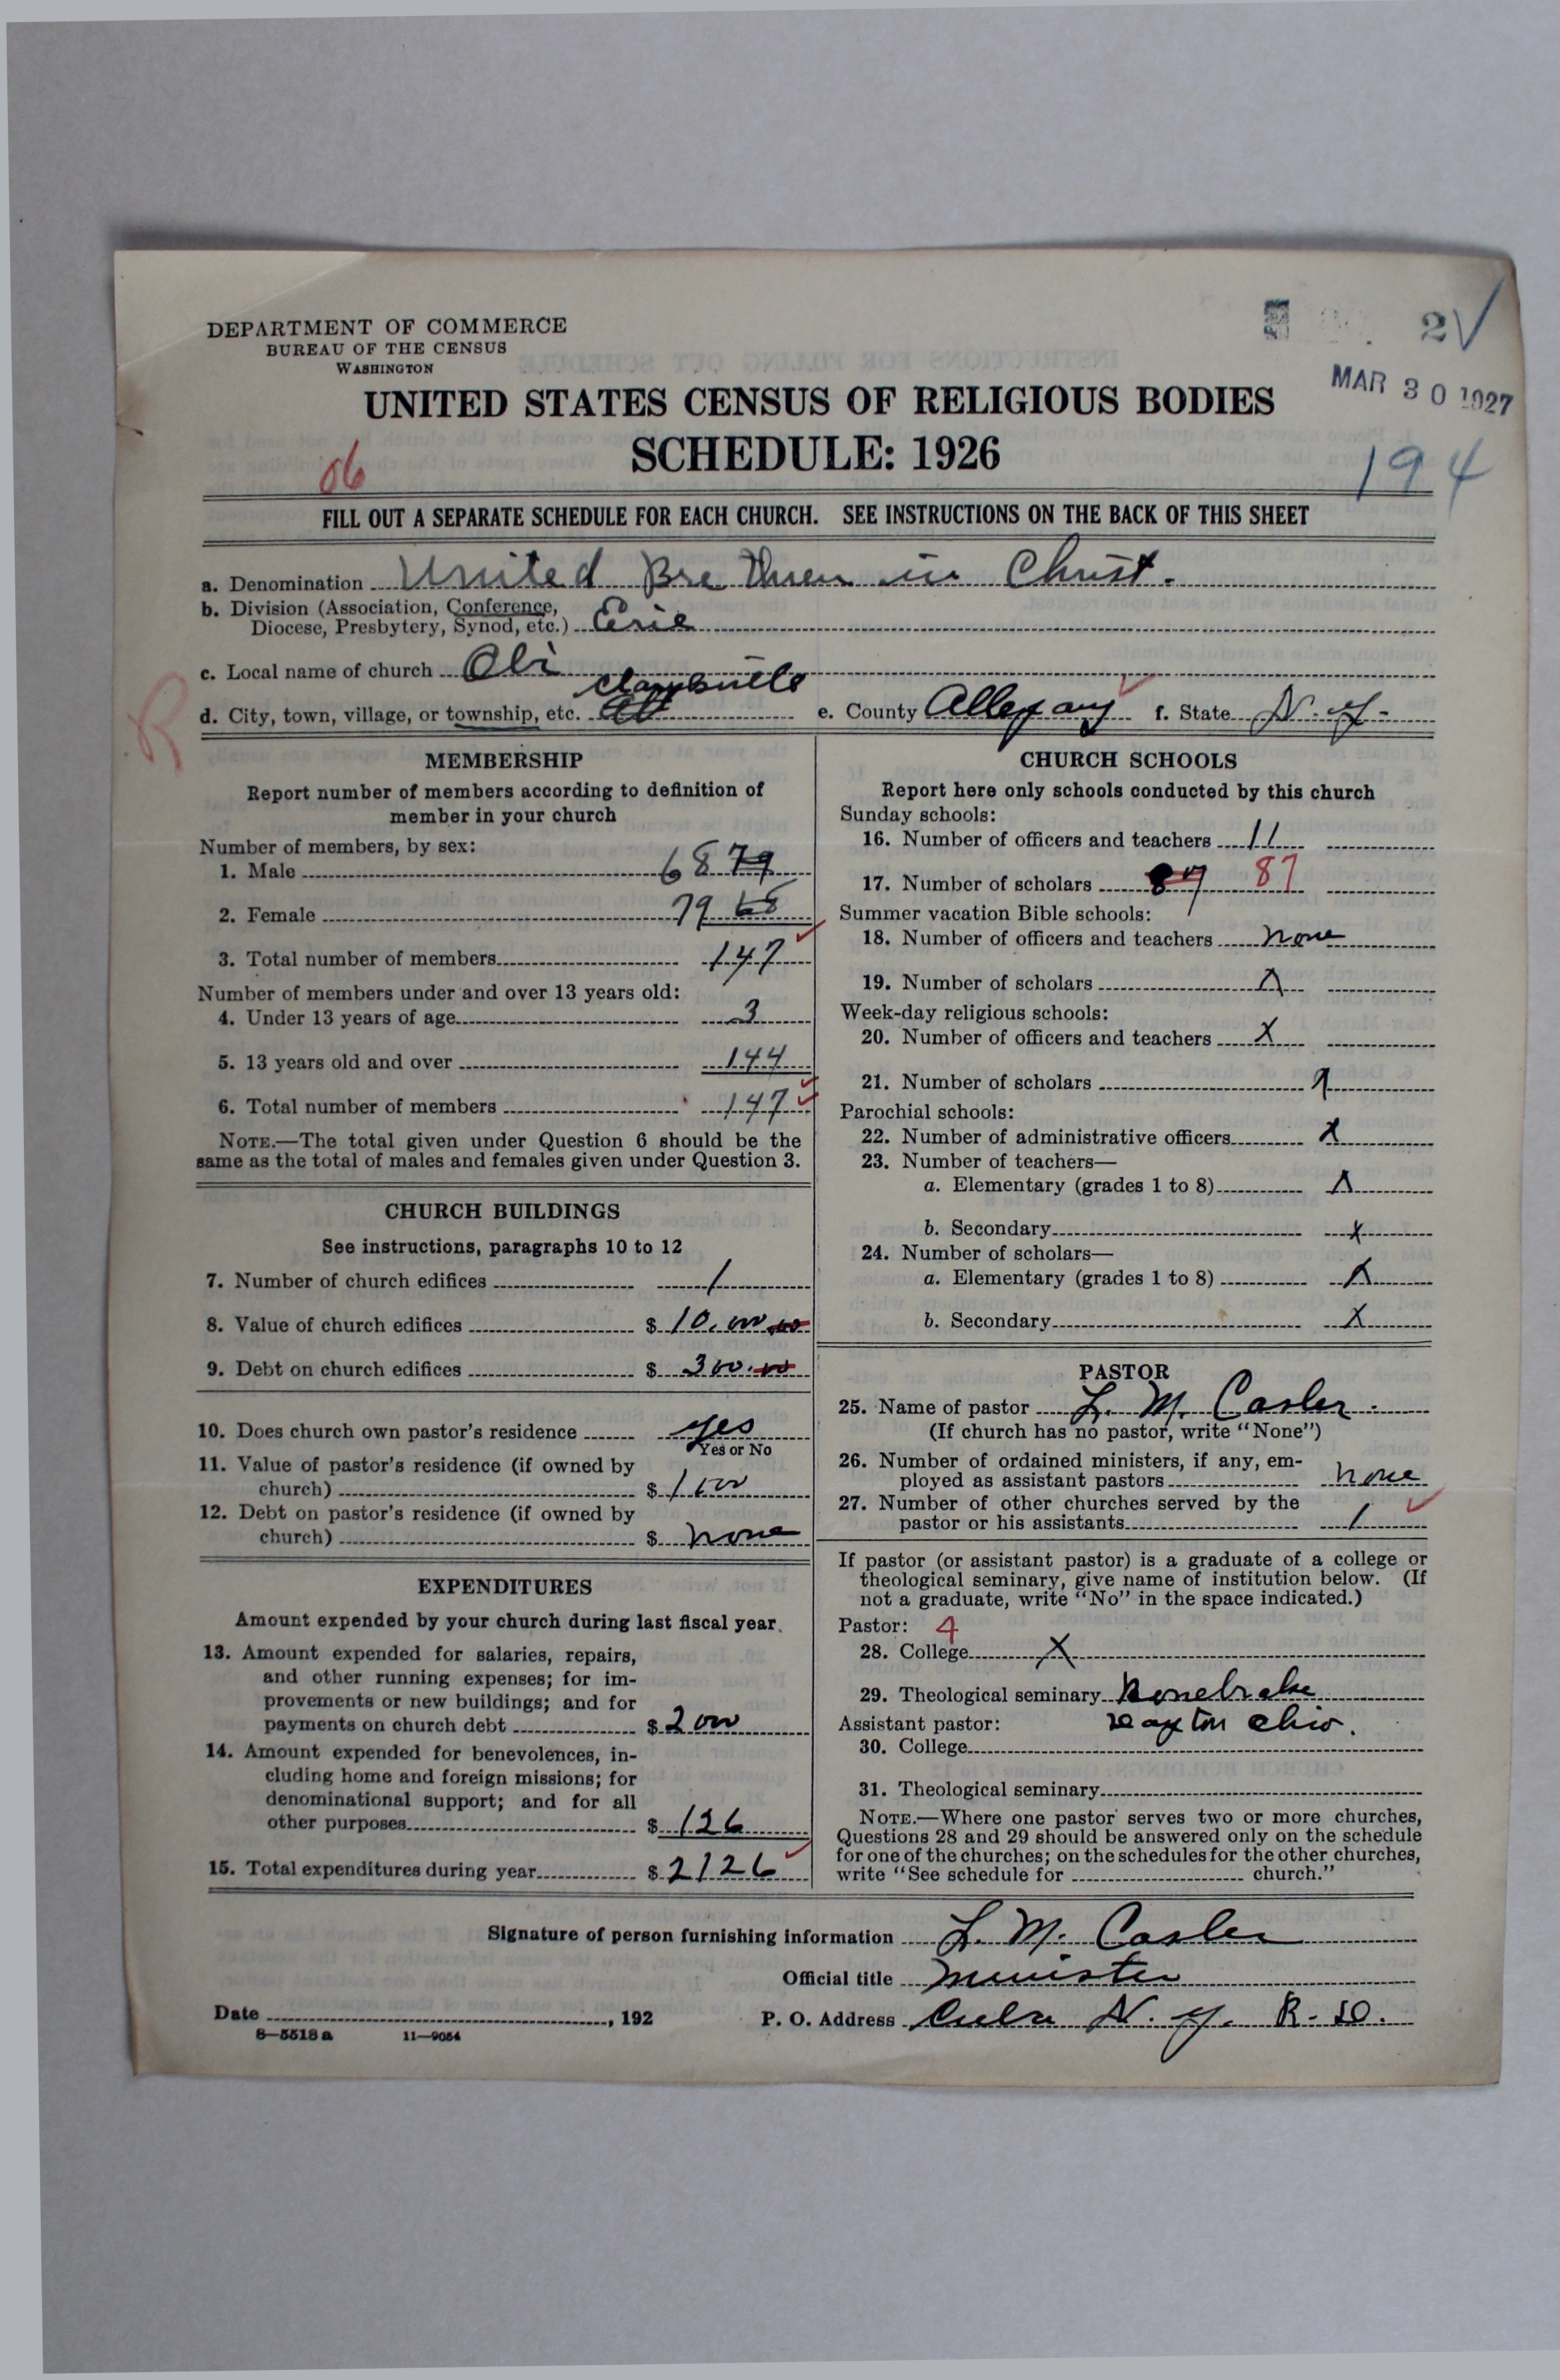 DEPARTMENT OF COMMERCE
BUREAU OF THE CENSUS
WASHINGTON
2
MAR 30 1927
UNITED STATES CENSUS OF RELIGIOUS BODIES
SCHEDULE: 1926
06
194
FILL OUT A SEPARATE SCHEDULE FOR EACH CHURCH. SEE INSTRUCTIONS ON THE BACK OF THIS SHEET
a. Denomination United Brethren in Christ.
b. Division (Association, Conference,
Diocese, Presbytery, Synod, etc.) Erie
c. Local name of church Obi
R
d. City, town, village, or township, etc. Clarksville e. County Allegany f. State N.Y.
MEMBERSHIP
Report number of members according to definition of
member in your church
Number of members, by sex:
1. Male 68 79
2. Female 79 68
3. Total number of members 147
Number of members under and over 13 years old:
4. Under 13 years of age 3
5. 13 years old and over 144
6. Total number of members 147
NOTE.—The total given under Question 6 should be the
same as the total of males and females given under Question 3.
CHURCH BUILDINGS
See instructions, paragraphs 10 to 12
7. Number of church edifices 1
8. Value of church edifices $ 10,000.00
9. Debt on church edifices $ 300.00
10. Does church own pastor's residence yes
Yes or No
11. Value of pastor's residence (if owned by
church) $
12. Debt on pastor's residence (if owned by
church) $ none
EXPENDITURES
Amount expended by your church during last fiscal year.
13. Amount expended for salaries, repairs,
and other running expenses; for im-
provements or new buildings; and for
payments on church debt $ 2000
14. Amount expended for benevolences, in-
cluding home and foreign missions; for
denominational support; and for all
other purposes $ 126
15. Total expenditures during year $ 2126
CHURCH SCHOOLS
Report here only schools conducted by this church
Sunday schools:
16. Number of officers and teachers 11
17. Number of scholars 87 87
Summer vacation Bible schools:
18. Number of officers and teachers none
19. Number of scholars X
Week-day religious schools:
20. Number of officers and teachers X
21. Number of scholars X
Parochial schools:
22. Number of administrative officers X
23. Number of teachers—
a. Elementary (grades 1 to 8) X
b. Secondary X
24. Number of scholars—
a. Elementary (grades 1 to 8) X
b. Secondary X
PASTOR
25. Name of pastor L. M. Casler.
(If church has no pastor, write "None")
26. Number of ordained ministers, if any, em-
ployed as assistant pastors none
27. Number of other churches served by the
pastor or his assistants 1
If pastor (or assistant pastor) is a graduate of a college or
theological seminary, give name of institution below. (If
not a graduate, write "No" in the space indicated.)
Pastor: 4
28. College X
29. Theological seminary Bonebrake
Assistant pastor: Dayton Ohio.
30. College
31. Theological seminary
NOTE.—Where one pastor serves two or more churches,
Questions 28 and 29 should be answered only on the schedule
for one of the churches; on the schedules for the other churches,
write "See schedule for church."
Signature of person furnishing information L. M. Casler
Official title Minister
Date , 192 P. O. Address Cuba N. Y. R. D.
8—5518 a 11—9054